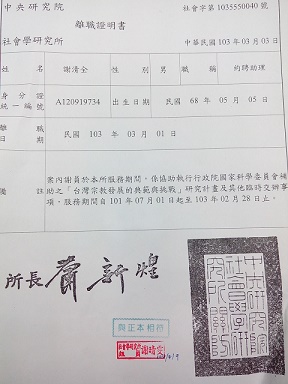 中央研究院
社會字第1035550040號
離職證明書
社會學研究所
中華民國 103 年 03 月 03 日
姓名 謝清全 性別 男 職稱 約聘助理
身分證統一編號 A120919734 出生日期 民國 68 年 05 月 05 日
離職日期 民國 103 年 03 月 01 日
備註
案內謝員於本所服務期間,係協助執行行政院國家科學委員會補
助之「台灣宗教發展的典範與挑戰」研究計畫及其他臨時交辦事
項。服務期間自 101 年 07 月 01 日起至 103 年 02 月 28 日止。
所長 蕭新煌
中央研究院社會學研究所關防
與正本相符